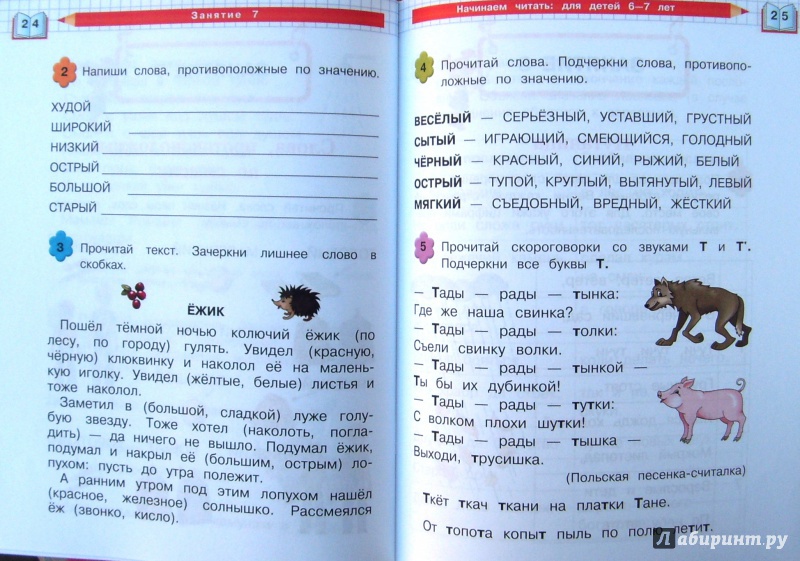 24
Занятие 7
2 Напиши слова, противоположные по значению.
ХУДОЙ
ШИРОКИЙ
НИЗКИЙ
ОСТРЫЙ
БОЛЬШОЙ
СТАРЫЙ
3 Прочитай текст. Зачеркни лишнее слово в
скобках.
ЁЖИК
Пошёл тёмной ночью колючий ёжик (по
лесу, по городу) гулять. Увидел (красную,
чёрную) клюквинку и наколол её на малень-
кую иголку. Увидел (жёлтые, белые) листья и
тоже наколол.
Заметил в (большой, сладкой) луже голу-
бую звезду. Тоже хотел (наколоть, погла-
дить) — да ничего не вышло. Подумал ёжик,
подумал и накрыл её (большим, острым) ло-
пухом: пусть до утра полежит.
А ранним утром под этим лопухом нашёл
(красное, железное) солнышко. Рассмеялся
ёж (звонко, кисло).
Начинаем читать: для детей 6—7 лет
25
4 Прочитай слова. Подчеркни слова, противопо-
ложные по значению.
ВЕСЁЛЫЙ — СЕРЬЁЗНЫЙ, УСТАВШИЙ, ГРУСТНЫЙ
СЫТЫЙ — ИГРАЮЩИЙ, СМЕЮЩИЙСЯ, ГОЛОДНЫЙ
ЧЁРНЫЙ — КРАСНЫЙ, СИНИЙ, РЫЖИЙ, БЕЛЫЙ
ОСТРЫЙ — ТУПОЙ, КРУГЛЫЙ, ВЫТЯНУТЫЙ, ЛЕВЫЙ
МЯГКИЙ — СЪЕДОБНЫЙ, ВРЕДНЫЙ, ЖЁСТКИЙ
5 Прочитай скороговорки со звуками Т и Т'.
Подчеркни все буквы Т.
— Тады — рады — тынка:
Где же наша свинка?
— Тады — рады — толки:
Съели свинку волки.
— Тады — рады — тынкой —
Ты бы их дубинкой!
— Тады — рады — тутки:
С волком плохи шутки!
— Тады — рады — тышка —
Выходи, трусишка.
(Польская песенка-считалка)
Ткёт ткач ткани на платки Тане.
От топота копыт пыль по полю летит.
Лабиринт.ру